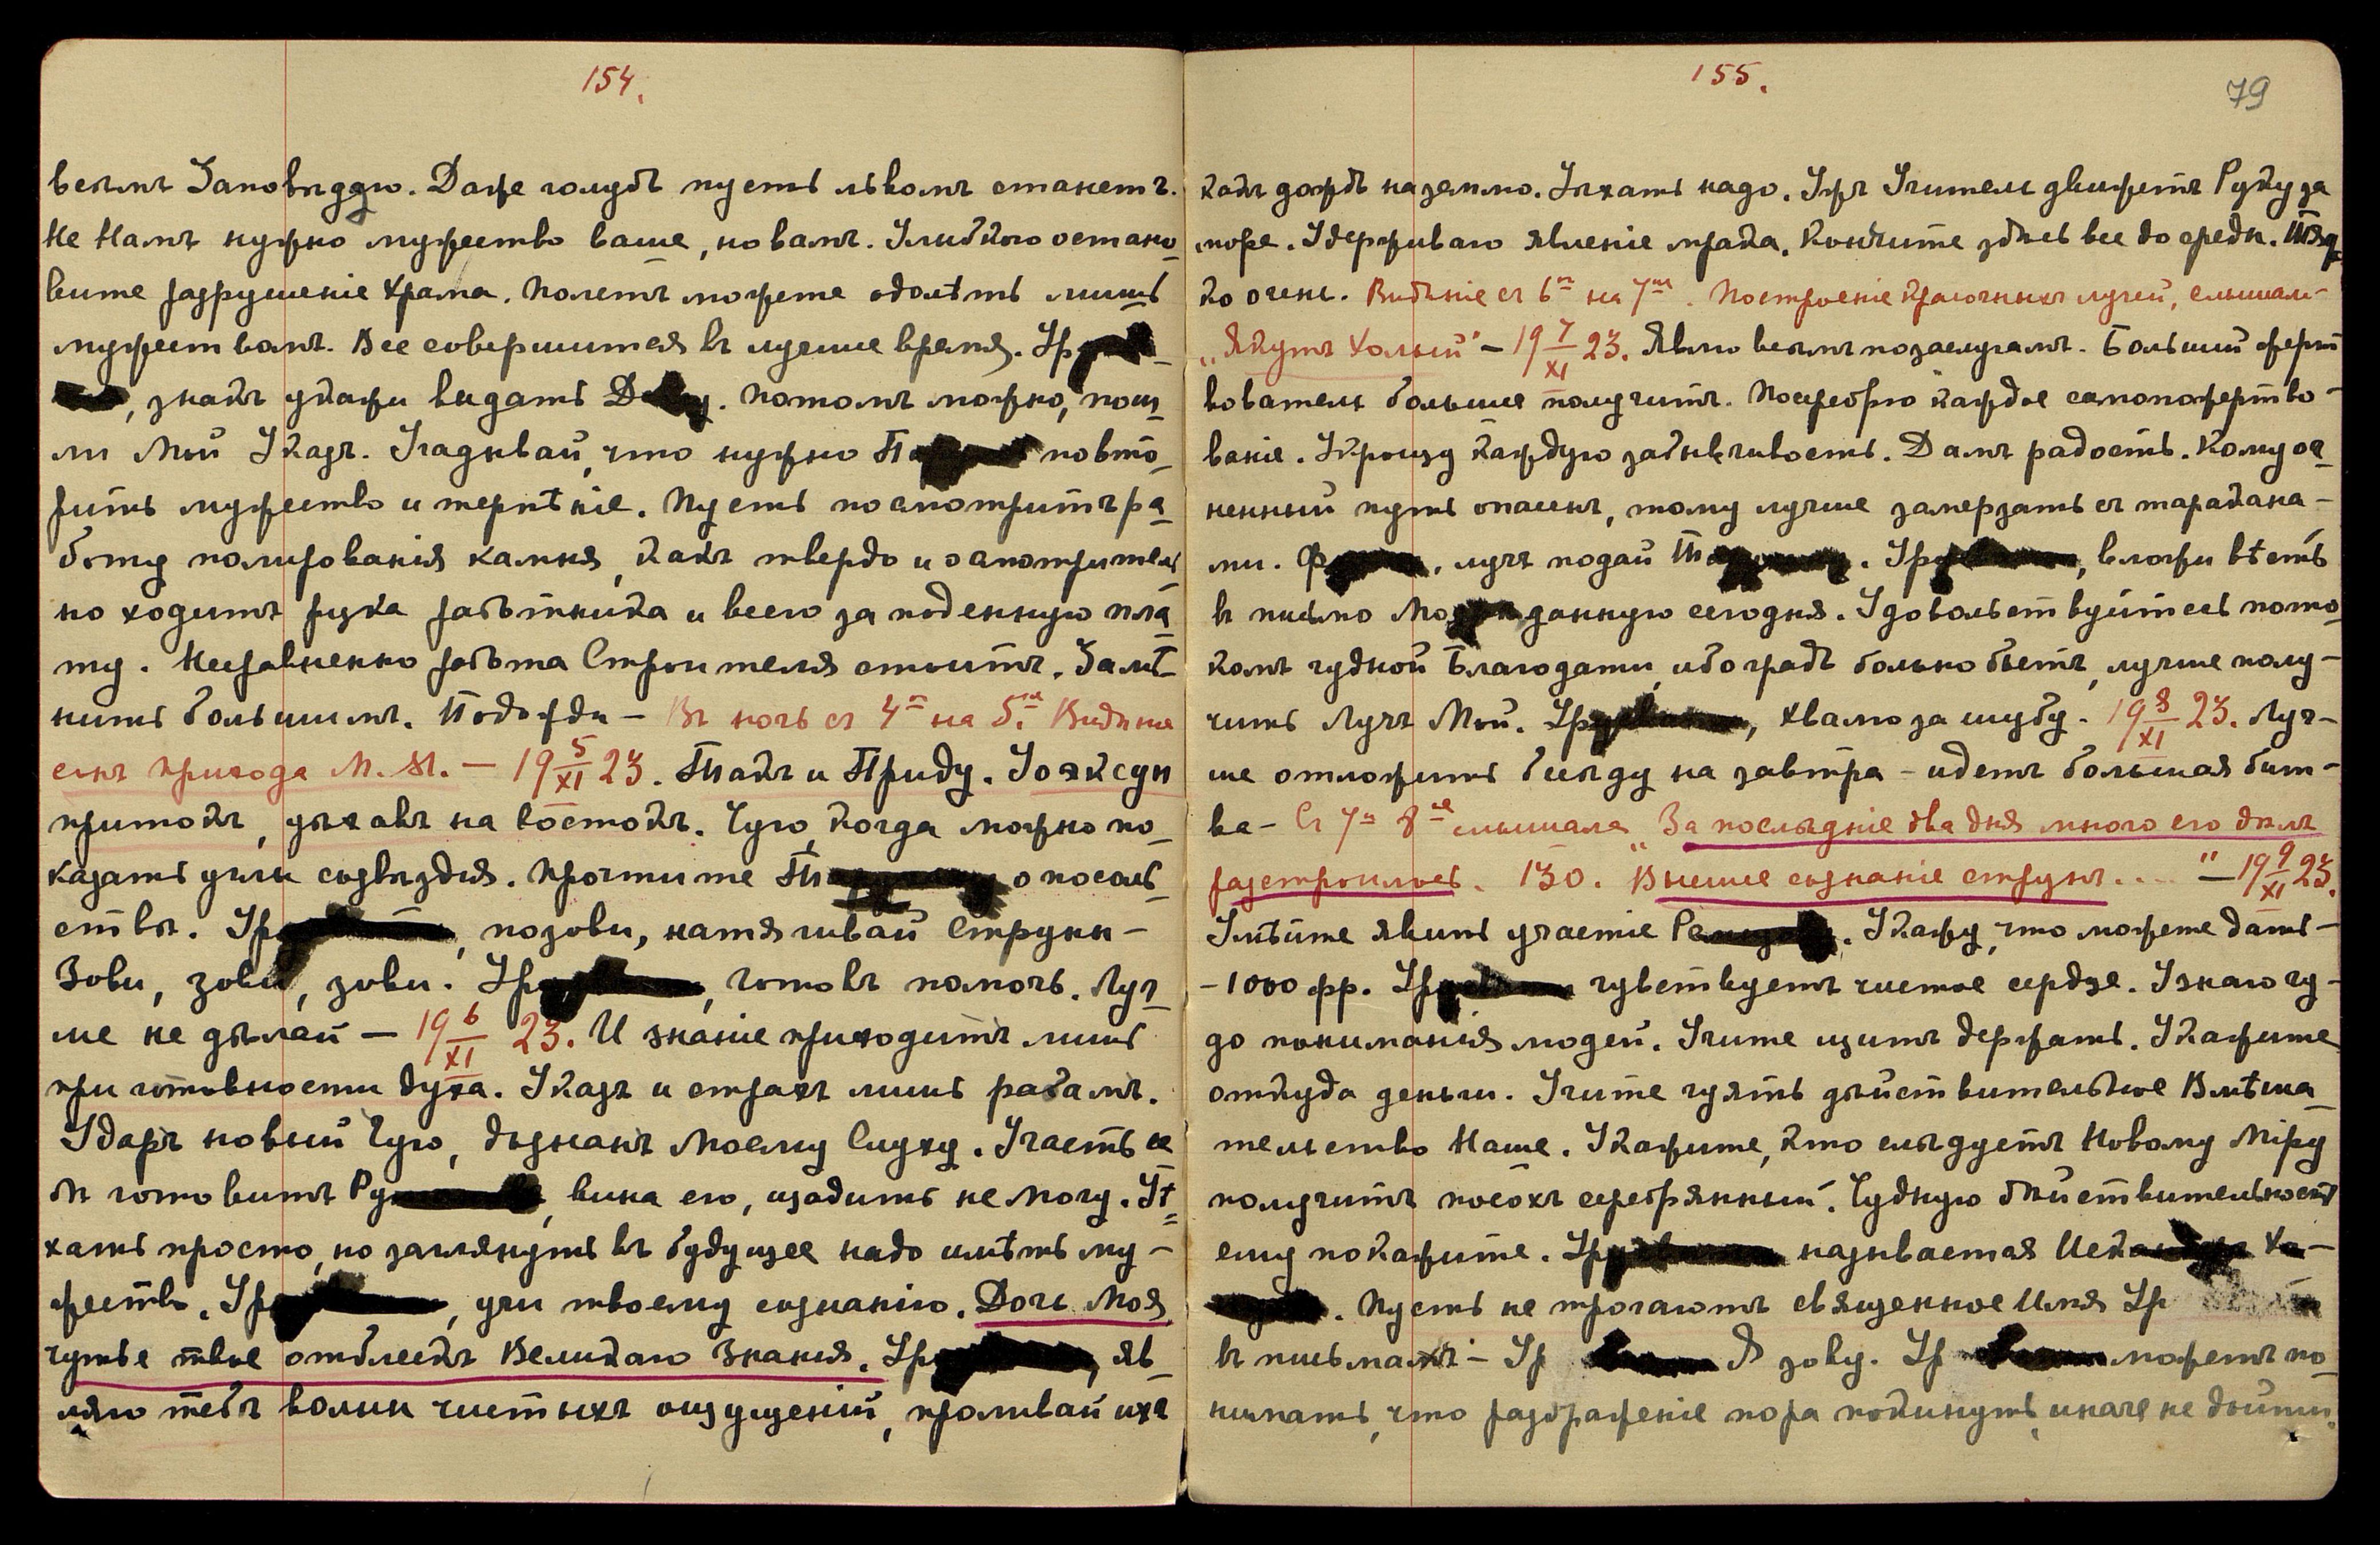 154.
всѣмъ Заповѣдую. Даже голубь пусть львомъ станетъ.
Не Намъ нужно мужество ваше, но вамъ. Улыбкою остано-
вите разрушеніе Храма. Полетъ можете одолѣть лишь
мужествомъ. Все совершится въ лучшее время. Ур
, знакъ укажи видать Д. Потомъ можно, пош-
ли Мой Указъ. Угадывай, что нужно П повто-
рить мужество и терпѣніе. Пусть посмотритъ ра-
боту полированія камня, какъ твердо и осмотритель-
но ходитъ рука работника и всего за поденную пла-
ту. Несравненно работа Строителя стоитъ. Замѣ-
нить большимъ. Подожди – Въ ночь съ 4го на 5ое Видѣніе
снъ прихода М. М. – 19 5/XI 23. Такъ и Приду. Уояксун
притокъ, уѣхавъ на востокъ. Чую, когда можно по-
казать узлы созвѣздія. Прочтите Т о посоль-
ствѣ. Ур, позови, натягивай Струны –
Зови, зови, зови. Ур, готовъ помочь. Луч-
ше не дѣлай – 19 6/XI 23. И знаніе приходитъ лишь
при готовности духа. Указъ и страхъ лишь рабамъ.
Ударъ новый Чую, дознанъ Моему Слуху. Участь се-
бѣ готовитъ Ру, вина его, щадить не могу. Уѣ-
хать просто, но заглянуть въ будущее надо имѣть му-
жество. Ур, учи твоему сознанію. Дочь Моя,
чутье твое отблескъ Великаго Знанія. Ур, яв-
ляю тебѣ волны чистыхъ ощущеній, проливай ихъ
155.
79
какъ дождь на землю. Уѣхать надо. Ужъ Учитель движетъ Руку за
море. Удерживаю явленіе мрака. Кончите здѣсь все до среды.
ко очень. Видѣніе съ 6го на 7ое. Построеніе красочныхъ лучей, слышала –
„Якутъ Холый" – 19 7/XI 23. Явлю всѣмъ по заслугамъ. Большій жерт-
вователь больше получитъ. Посребрю каждое самопожертво-
ваніе. Укрощу каждую забывчивость. Дамъ радость. Кому ог-
ненный путь опасенъ, тому лучше замерзать съ таракана-
ми. Ф, лучъ подай Т. Ур, вложи вѣсть
въ письмо Мо данную сегодня. Удовольствуйтесь пото-
комъ чудной Благодати, ибо градъ больно бьетъ, лучше полу-
чить Лучъ Мой. Ур, хвалю за шубу. 19 8/XI 23. Луч-
ше отложить бесѣду на завтра – идетъ большая бит-
ва – Съ 7го 8ое слышала „За послѣдніе два дня много его дѣлъ
разстроилось. 130. „Высшее сознаніе струнъ .... " – 19 9/XI 23.
Умѣйте явить участіе Ра. Укажу, что можете дать –
– 1000 фр. Ур чувствуетъ чистое сердце. Узнаю чу-
до пониманія людей. Учите щитъ держать. Укажите
откуда деньги. Учите чуять дѣйствительное Вмѣша-
тельство Наше. Укажите, кто слѣдуетъ Новому Міру
получитъ посохъ серебрянный. Чудную дѣйствительность
ему покажите. Ур называется Иска Ха-
. Пусть не трогаютъ священное Имя Ур
въ письмахъ – Ур Я зову. Ур можетъ по-
нимать, что раздраженіе пора покинуть, иначе не дойти.